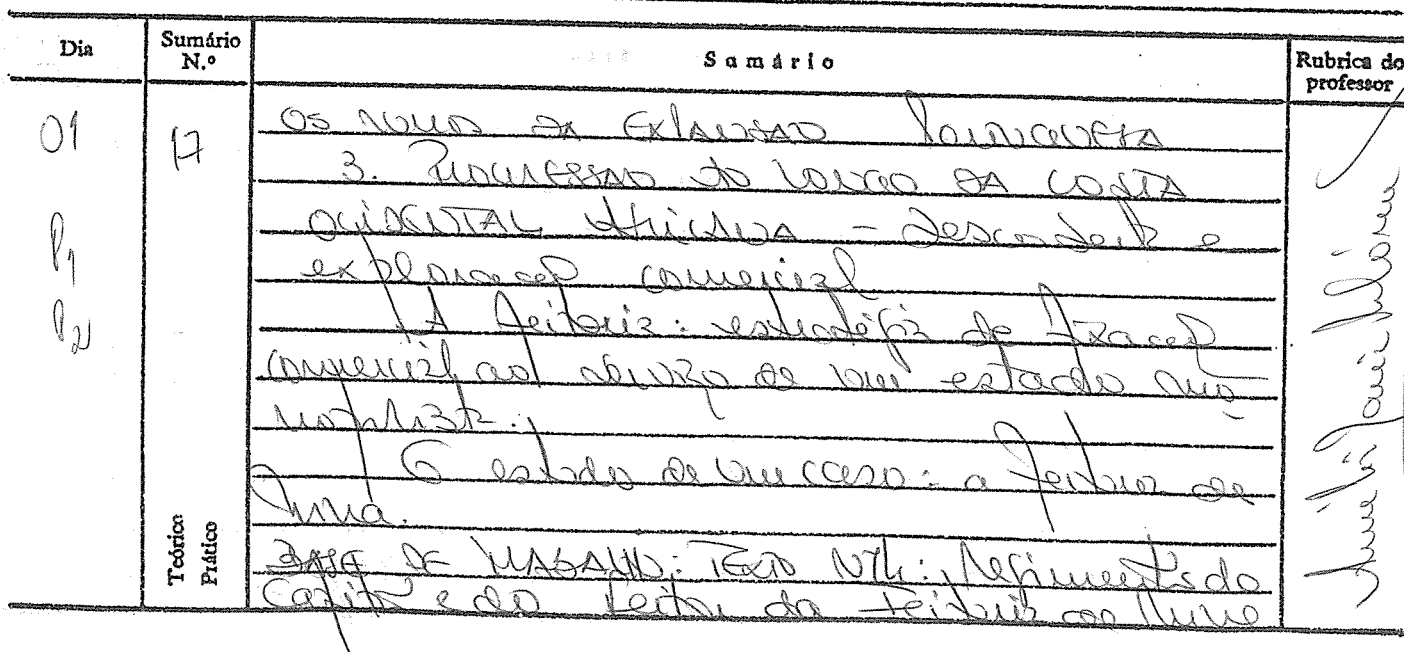 Dia
Sumário N.º
Sumário
Rubrica do professor
01
17
P1
P2
Teórico
Prático
Os rumos da Expansão Portuguesa
3. Progressão ao longo da costa
ocidental Africana - descoberta e
exploração comercial
A feitoria: estratégia de fixação
comercial ao serviço de um estado mo
nopolista.
O estudo de um caso: a feitoria de
Mina.
Base de trabalho: Texto Nº4: Regimento do
Capitão e do feitor da feitoria da Mina